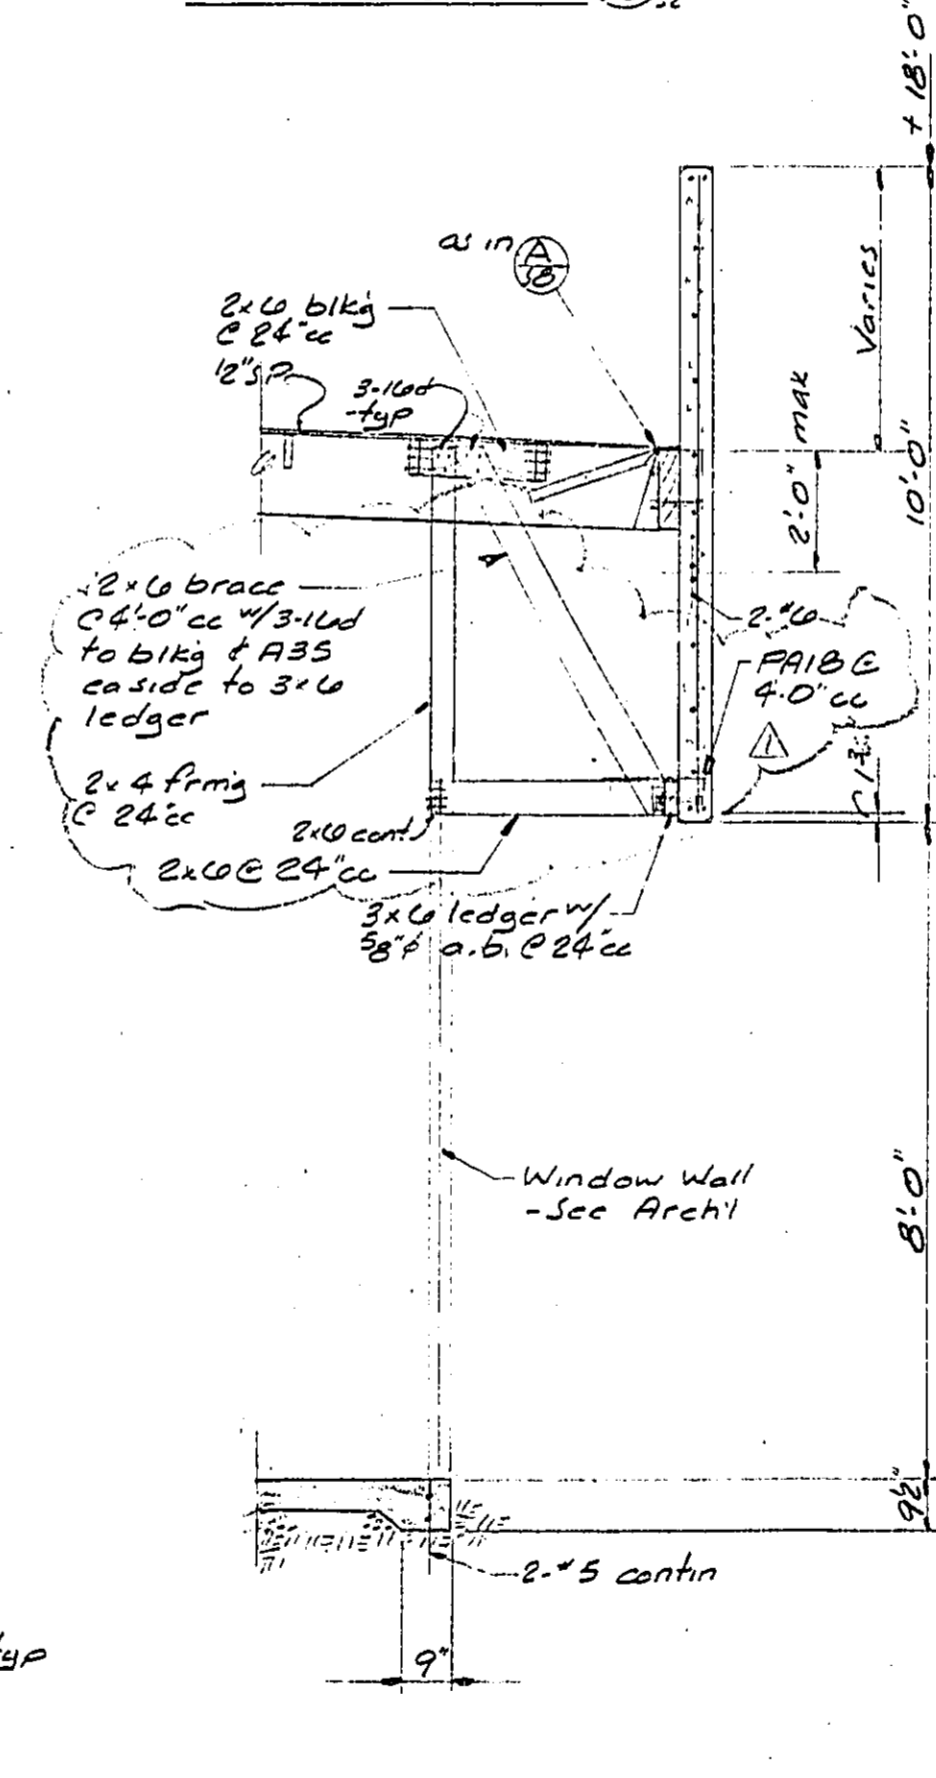 + 18'-0"
as in A
S8
2x6 blkg
@ 24"cc
1/2" sp
3-16d
-typ
Varies
2'-0" max
10'-0"
2x6 brace
@ 4'-0" cc w/3-16d
to blkg & A35
ea side to 3x6
ledger
2-#6
PA18 @
4'-0" cc
1
2x4 frm'g
@ 24"cc
2x6 cont
2x6 @ 24"cc
3x6 ledger w/
5/8"ø a.b. @ 24"cc
Window Wall
-See Arch'l
8'-0"
9 1/2"
2-#5 contin
9"
typ